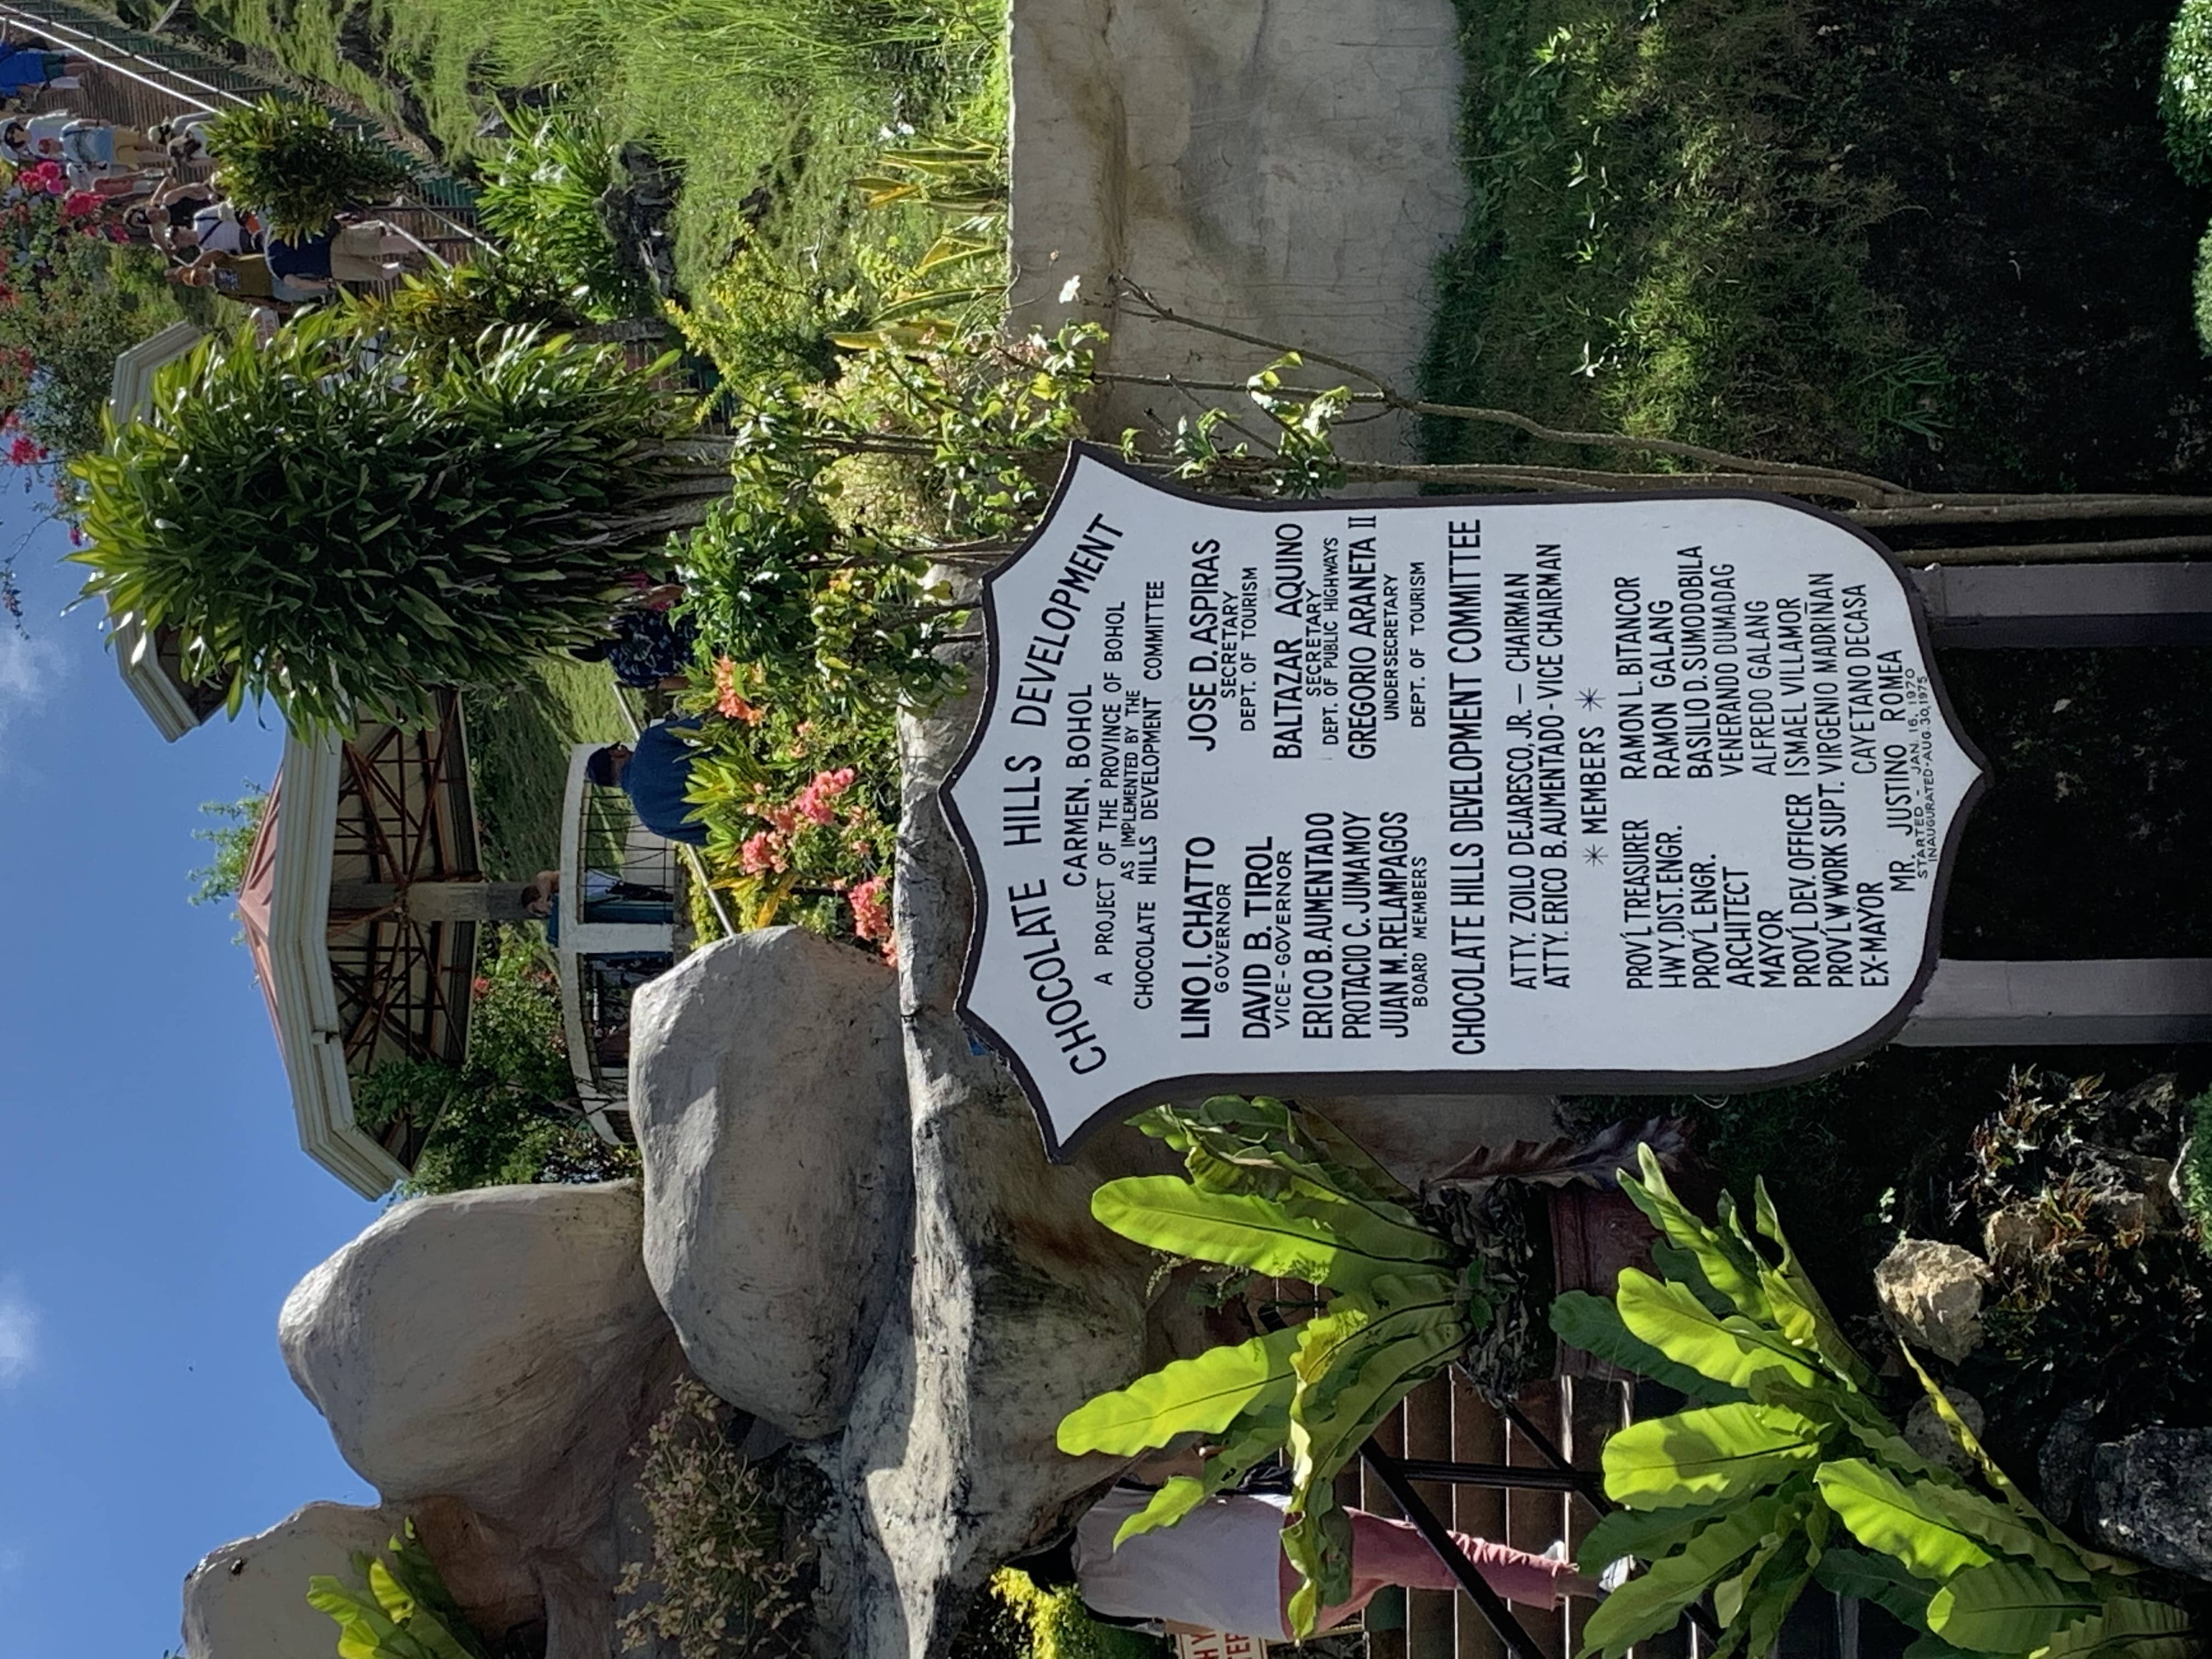 CHOCOLATE HILLS DEVELOPMENT
CARMEN, BOHOL
A PROJECT OF THE PROVINCE OF BOHOL
AS IMPLEMENTED BY THE
CHOCOLATE HILLS DEVELOPMENT COMMITTEE
LINO I. CHATTO
GOVERNOR
DAVID B. TIROL
VICE-GOVERNOR
ERICO B. AUMENTADO
PROTACIO C. JUMAMOY
JUAN M. RELAMPAGOS
BOARD MEMBERS
JOSE D. ASPIRAS
SECRETARY
DEPT. OF TOURISM
BALTAZAR AQUINO
SECRETARY
DEPT. OF PUBLIC HIGHWAYS
GREGORIO ARANETA II
UNDERSECRETARY
DEPT. OF TOURISM
CHOCOLATE HILLS DEVELOPMENT COMMITTEE
ATTY. ZOILO DEJARESCO, JR. — CHAIRMAN
ATTY. ERICO B. AUMENTADO - VICE CHAIRMAN
✳ MEMBERS ✳
PROV'L TREASURER RAMON L. BITANCOR
HWY. DIST. ENGR. RAMON GALANG
PROV'L ENGR. BASILIO D. SUMODOBILA
ARCHITECT VENERANDO DUMADAG
MAYOR ALFREDO GALANG
PROV'L DEV. OFFICER ISMAEL VILLAMOR
PROV'L W WORK SUPT. VIRGENIO MADRIÑAN
EX-MAYOR CAYETANO DECASA
MR. JUSTINO ROMEA
STARTED - JAN. 16, 1970
INAUGURATED-AUG. 30, 1975